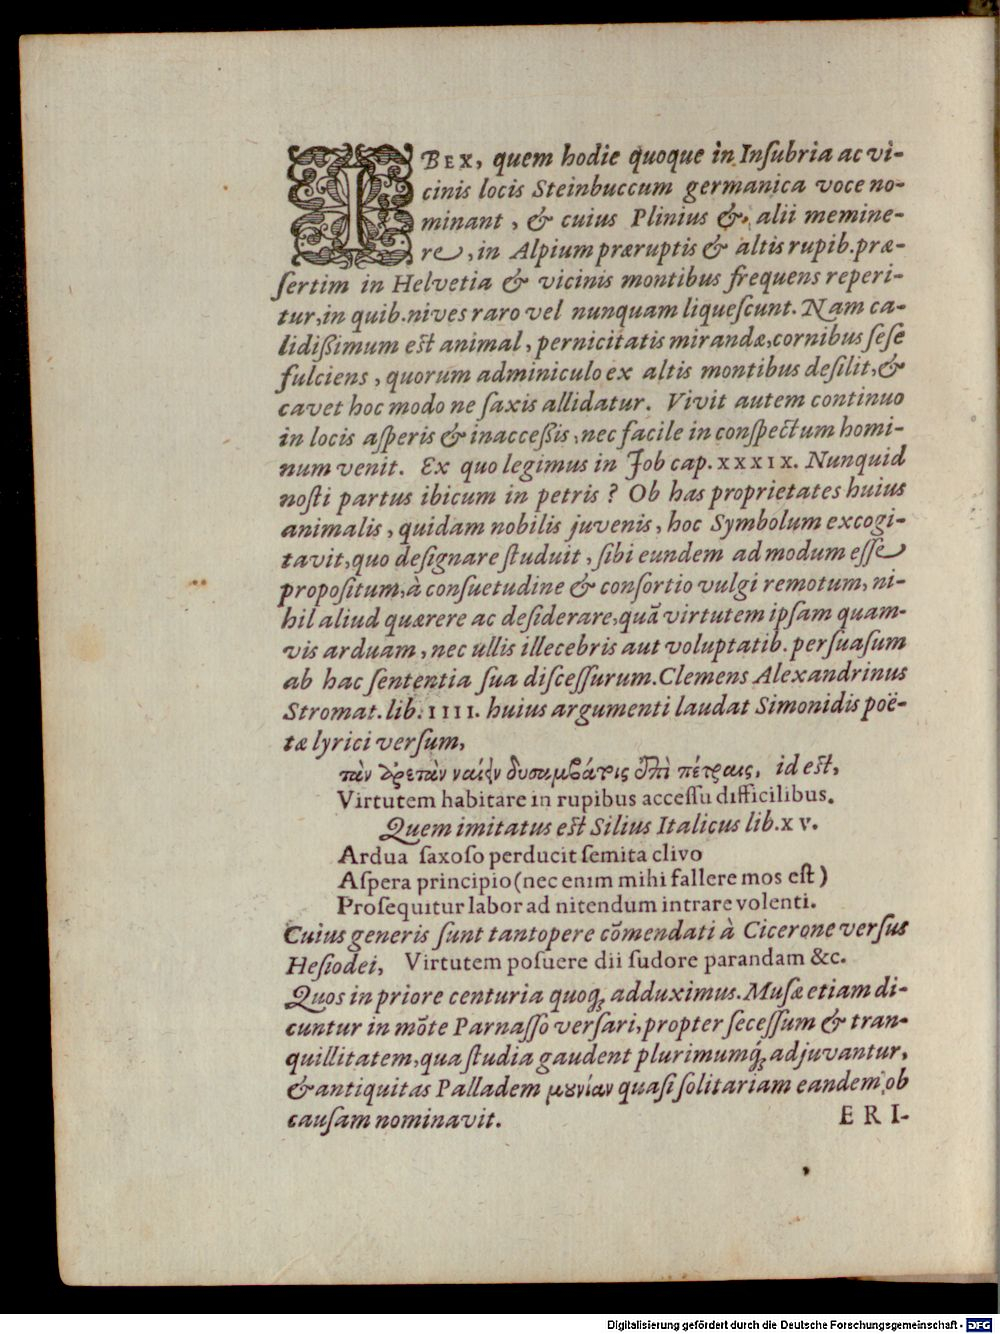 IBEX, quem hodie quoque in Inſubria ac vi-
cinis locis Steinbuccum germanica voce no-
minant, & cuius Plinius & alii memine-
re, in Alpium præruptis & altis rupib. præ-
ſertim in Helvetia & vicinis montibus frequens reperi-
tur, in quib. nives raro vel nunquam liqueſcunt. Nam ca-
lidißimum est animal, pernicitatis mirandæ, cornibus ſeſe
fulciens, quorum adminiculo ex altis montibus deſilit, &
cavet hoc modo ne ſaxis allidatur. Vivit autem continuo
in locis aſperis & inacceßis, nec facile in conſpectum homi-
num venit. Ex quo legimus in Job cap. XXXIX. Nunquid
noſti partus ibicum in petris? Ob has proprietates huius
animalis, quidam nobilis juvenis, hoc Symbolum excogi-
tavit, quo deſignare ſtuduit, ſibi eundem ad modum eſſe
propoſitum, à conſuetudine & conſortio vulgi remotum, ni-
hil aliud quærere ac deſiderare, quã virtutem ipſam quam-
vis arduam, nec ullis illecebris aut voluptatib. perſuaſum
ab hac ſententia ſua diſceſſurum. Clemens Alexandrinus
Stromat. lib. IIII. huius argumenti laudat Simonidis poë-
tæ lyrici verſum,
ναίειν δυσαμβάτοις ἐπὶ πέτραις, id est,
Virtutem habitare in rupibus acceſſu difficilibus.
Quem imitatus est Silius Italicus lib. XV.
Ardua ſaxoſo perducit ſemita clivo
Aſpera principio (nec enim mihi fallere mos eſt)
Proſequitur labor ad nitendum intrare volenti.
Cuius generis ſunt tantopere cõmendati à Cicerone verſus
Heſiodei, Virtutem poſuere dii ſudore parandam &c.
Quos in priore centuria quoq; adduximus. Muſæ etiam di-
cuntur in mõte Parnaſſo verſari, propter ſeceſſum & tran-
quillitatem, qua ſtudia gaudent plurimumq́; adjuvantur,
& antiquitas Palladem μουνίαν quaſi ſolitariam eandem ob
cauſam nominavit.
ERI-
Digitalisierung gefördert durch die Deutsche Forschungsgemeinschaft - DFG